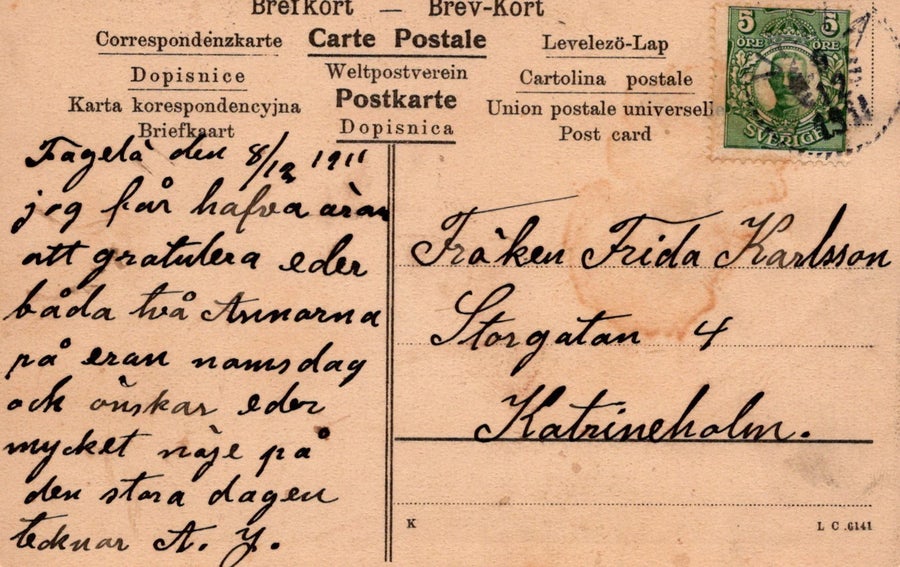 Brefkort — Brev-Kort
Correspondenzkarte Carte Postale Levelezö-Lap
Dopisnice Weltpostverein Cartolina postale
Karta korespondencyjna Postkarte Union postale universelle
Briefkaart Dopisnica Post card
5 5
ÖRE ÖRE
SVERIGE
1911
Fagelå den 8/12 1911
jag får hafva äran
att gratulera eder
båda två Annorna
på eran namsdag
ock önskar eder
mycket nöje på
den stora dagen
tecknar A. J.
Fröken Frida Karlsson
Storgatan 4
Katrineholm.
K
L C .6141